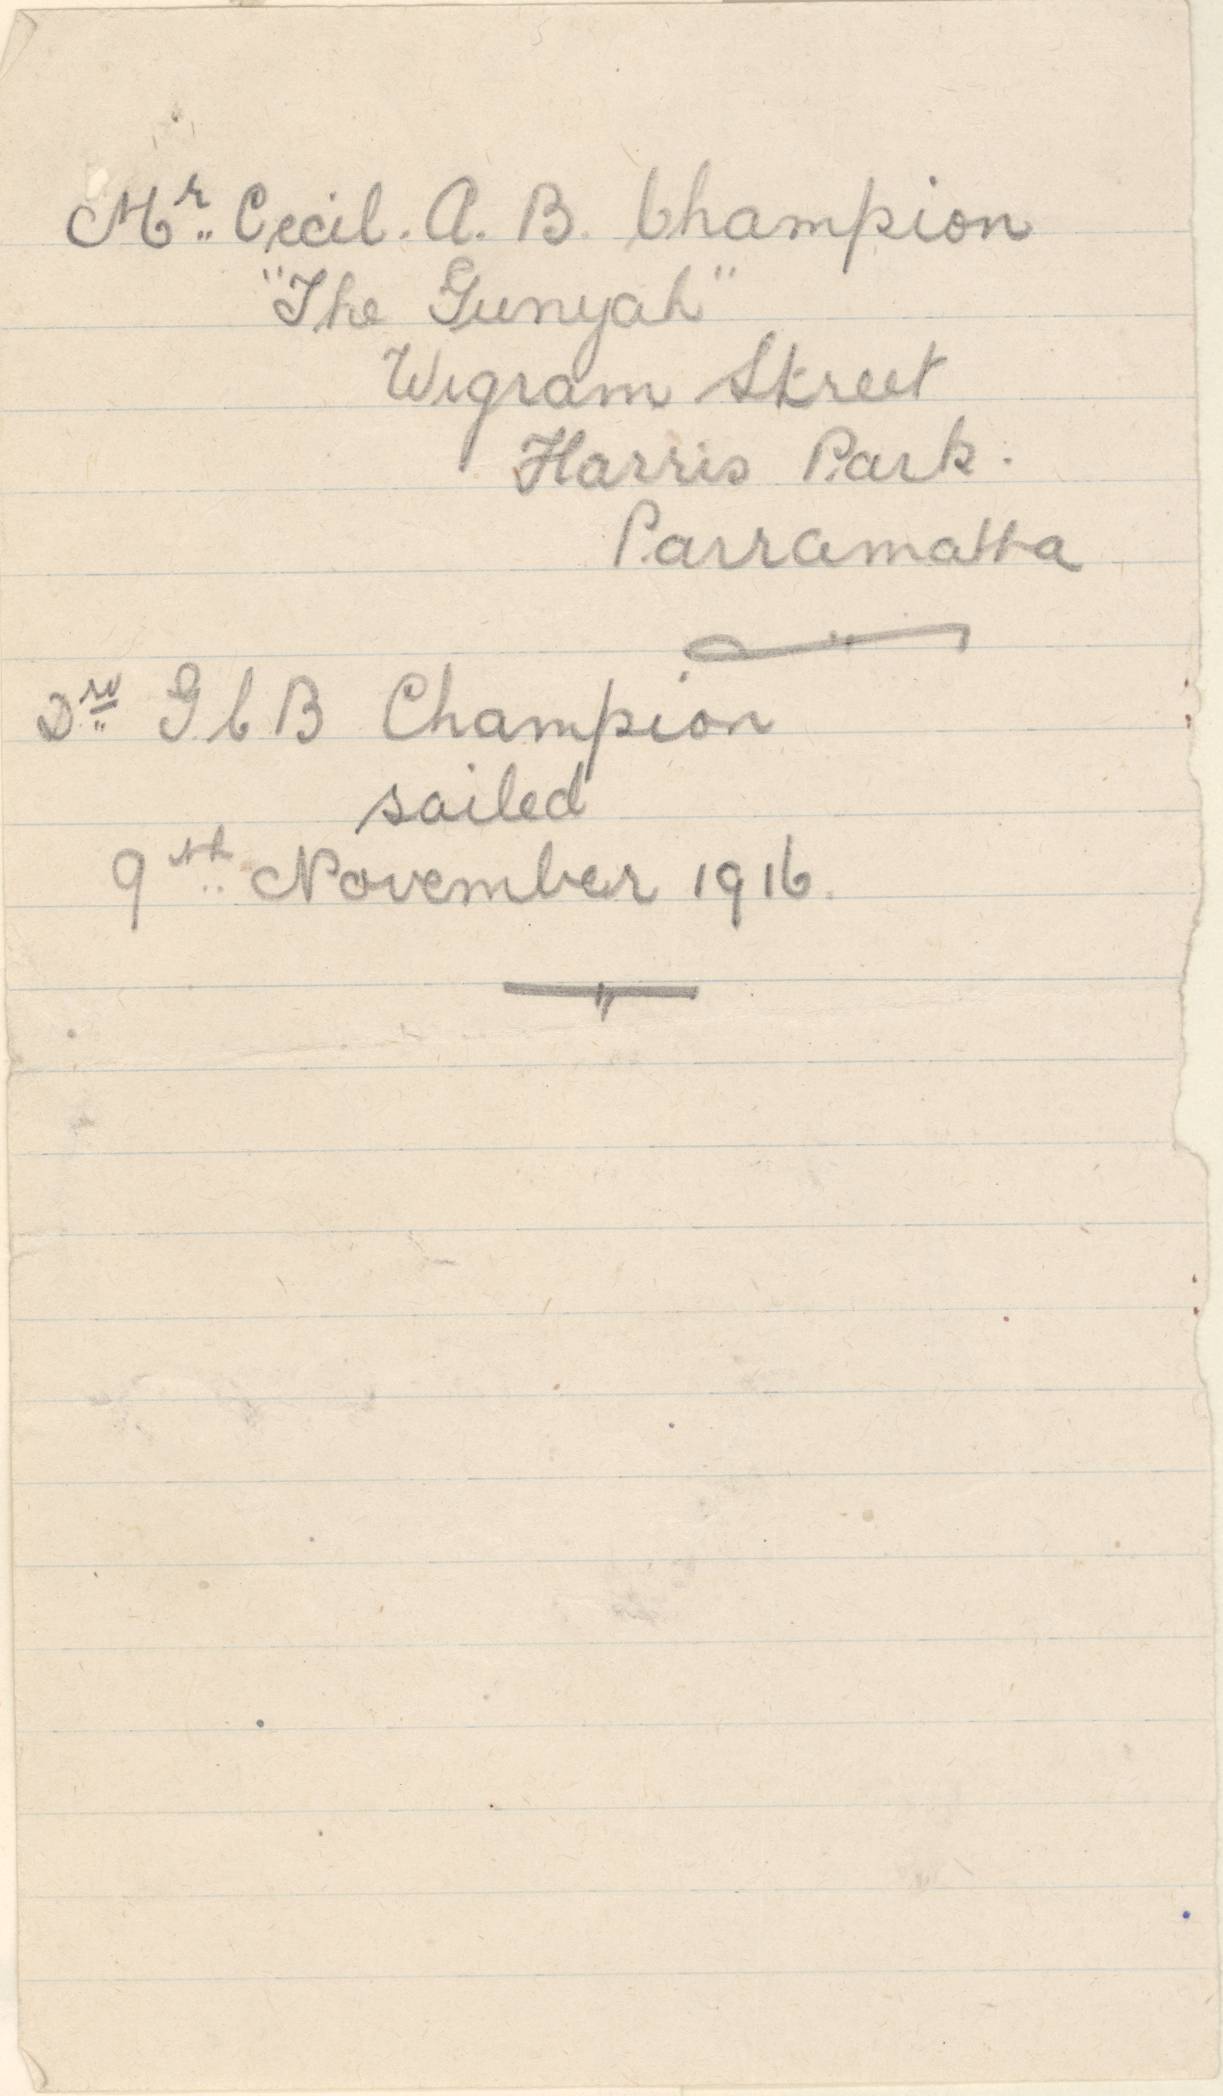 Mr. Cecil. A. B. Champion
"The Gunyah"
Wigram Street
Harris Park.
Parramatta
Drv G C B Champion
sailed
9th November 1916.